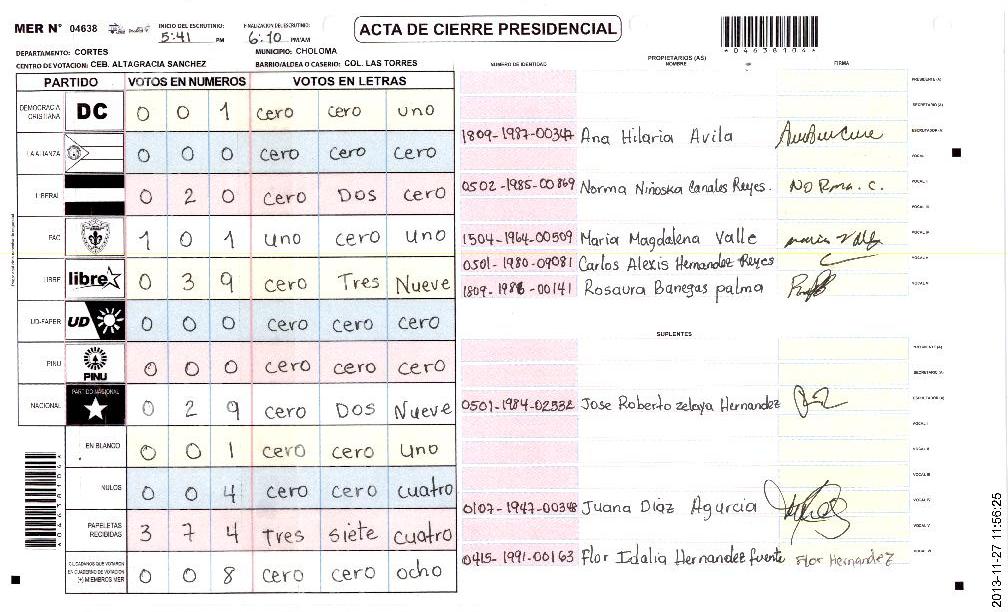 MER N° 04638
INICIO DEL ESCRUTINIO: 5:41 PM
FINALIZACION DEL ESCRUTINIO: 6:10 PM/AM
ACTA DE CIERRE PRESIDENCIAL
*04638104*
DEPARTAMENTO: CORTES
MUNICIPIO: CHOLOMA
CENTRO DE VOTACION: CEB. ALTAGRACIA SANCHEZ
BARRIO/ALDEA O CASERIO: COL. LAS TORRES
PARTIDO VOTOS EN NUMEROS VOTOS EN LETRAS
DEMOCRACIA CRISTIANA DC 0 0 1 cero cero uno
LA ALIANZA 0 0 0 cero cero cero
LIBERAL 0 2 0 cero Dos cero
PAC 1 0 1 uno cero uno
LIBRE libre 0 3 9 cero Tres Nueve
UD-FAPER UD 0 0 0 cero cero cero
PINU PINU 0 0 0 cero cero cero
NACIONAL PARTIDO NACIONAL 0 2 9 cero Dos Nueve
EN BLANCO 0 0 1 cero cero uno
NULOS 0 0 4 cero cero cuatro
PAPELETAS RECIBIDAS 3 7 4 Tres siete cuatro
CIUDADANOS QUE VOTARON EN CUADERNO DE VOTACION (+) MIEMBROS MER 0 0 8 cero cero ocho
PROPIETARIOS (AS)
NUMERO DE IDENTIDAD NOMBRE FIRMA
PRESIDENTE (A)
SECRETARIO (A)
1809-1987-00347 Ana Hilaria Avila ESCRUTADOR (A)
VOCAL I
0502-1985-00869 Norma Niñoska Canales Reyes. NORma. C. VOCAL II
VOCAL III
1504-1964-00509 Maria Magdalena Valle maria Valle VOCAL IV
0501-1980-09081 Carlos Alexis Hernandez Reyes VOCAL V
1809-1986-00141 Rosaura Banegas palma VOCAL VI
SUPLENTES
PRESIDENTE (A)
SECRETARIO (A)
0501-1984-02532 Jose Roberto zelaya Hernandez ESCRUTADOR (A)
VOCAL I
VOCAL II
VOCAL III
0107-1947-00348 Juana Diaz Agurcia VOCAL IV
VOCAL V
0415-1991-00163 Flor Idalia Hernandez fuente Flor Hernandez VOCAL VI
*04638104*
2013-11-27 11:56:25